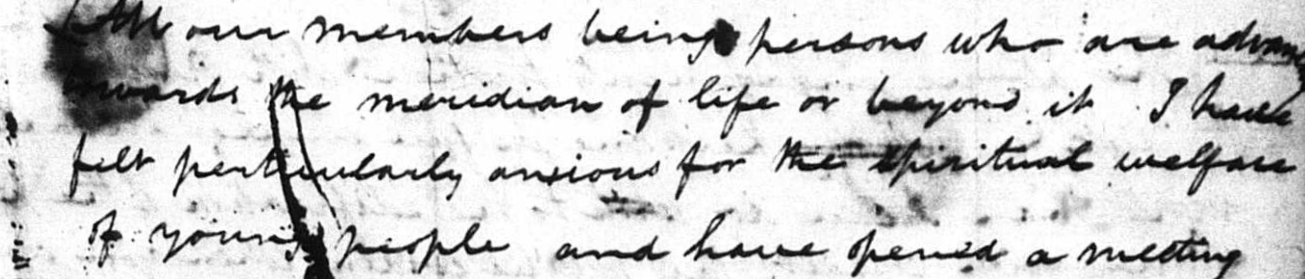 All our members being persons who are advanc
towards the meridian of life or beyond it I have
felt perticularly anxious for the spiritual welfare
of young people and have opened a meeting